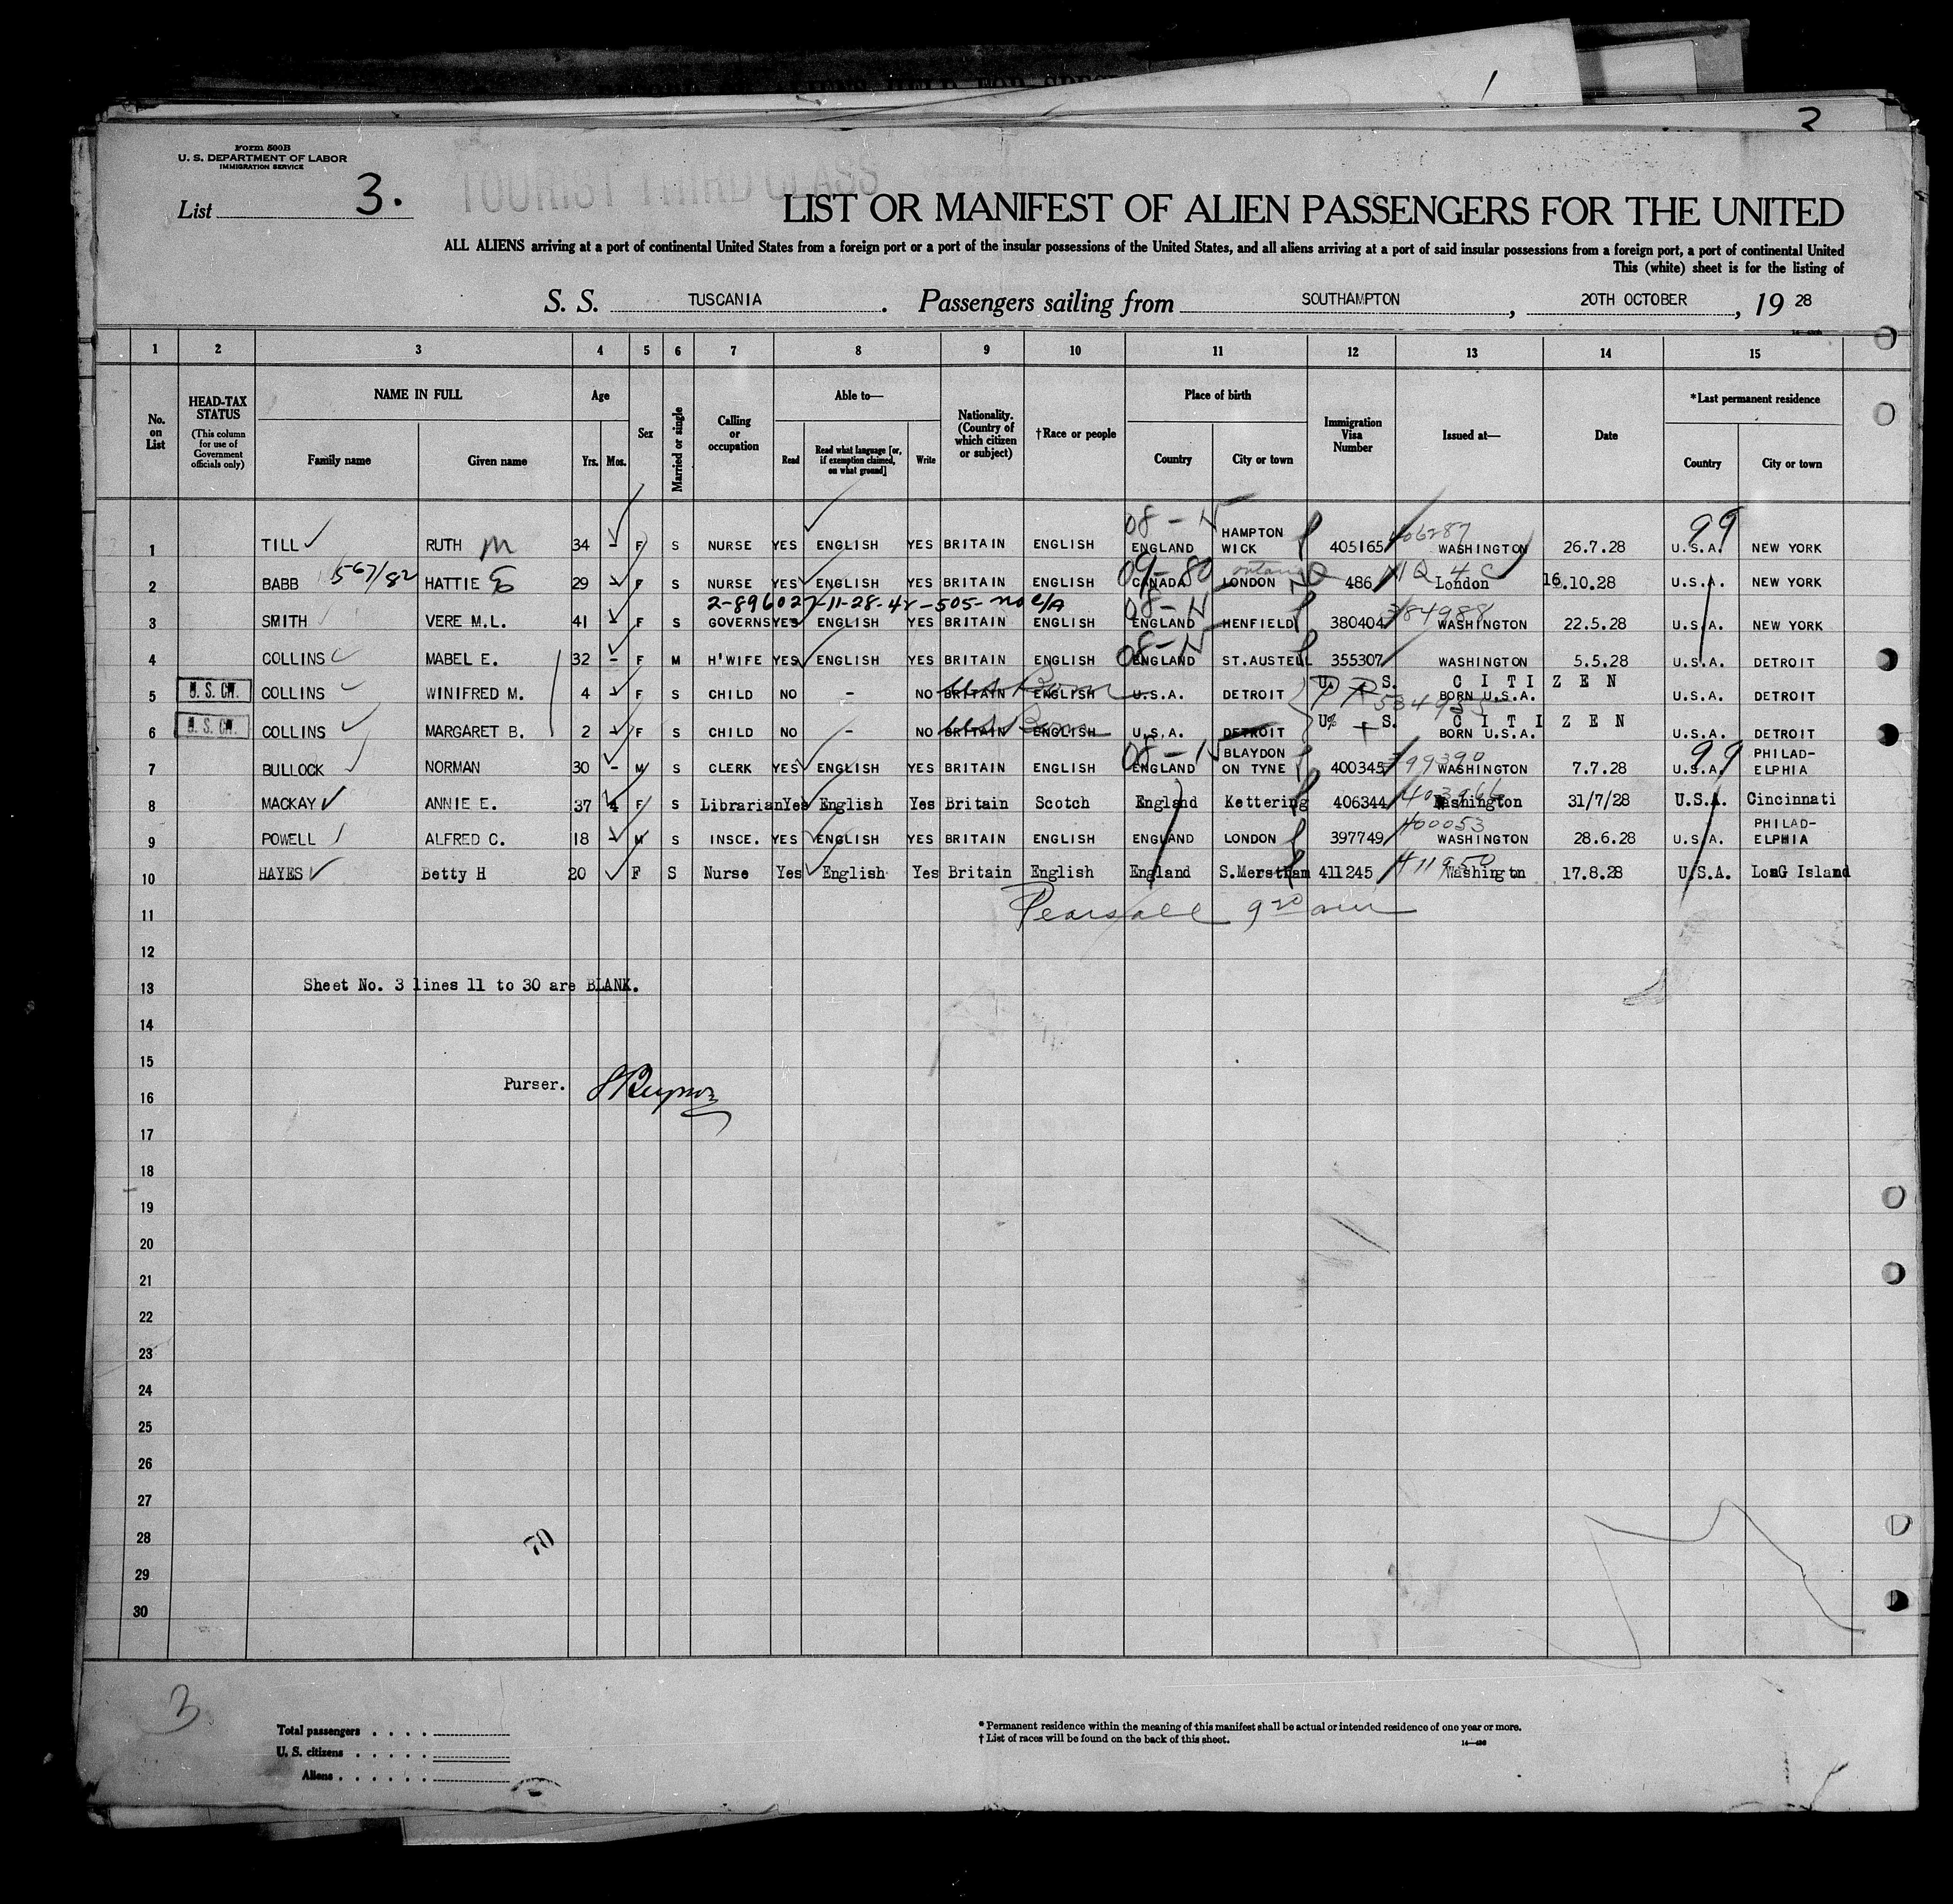 3
Form 500B
U. S. DEPARTMENT OF LABOR
IMMIGRATION SERVICE
TOURIST THIRD CLASS
List 3.
LIST OR MANIFEST OF ALIEN PASSENGERS FOR THE UNITED
ALL ALIENS arriving at a port of continental United States from a foreign port or a port of the insular possessions of the United States, and all aliens arriving at a port of said insular possessions from a foreign port, a port of continental United
This (white) sheet is for the listing of
S. S. TUSCANIA. Passengers sailing from SOUTHAMPTON, 20TH OCTOBER, 19 28
1 2 3 4 5 6 7 8 9 10 11 12 13 14 15
No. on List HEAD-TAX STATUS (This column for use of Government officials only) NAME IN FULL Family name Given name Age Yrs. Mos. Sex Married or single Calling or occupation Able to— Read Read what language [or, if exemption claimed, on what ground] Write Nationality. (Country of which citizen or subject) †Race or people Place of birth Country City or town Immigration Visa Number Issued at— Date *Last permanent residence Country City or town
08 - N 406287 99
1 TILL RUTH M 34 - F S NURSE YES ENGLISH YES BRITAIN ENGLISH ENGLAND HAMPTON WICK 405165 WASHINGTON 26.7.28 U.S.A. NEW YORK
567/82 09-80 Ontario
2 BABB HATTIE E 29 - F S NURSE YES ENGLISH YES BRITAIN ENGLISH CANADA LONDON 486 London 16.10.28 U.S.A. NEW YORK
2-896027-11-28-42-505- no C/A 08 - N 384988
3 SMITH VERE M.L. 41 - F S GOVERNS YES ENGLISH YES BRITAIN ENGLISH ENGLAND HENFIELD 380404 WASHINGTON 22.5.28 U.S.A. NEW YORK
08 - N
4 COLLINS MABEL E. 32 - F M H'WIFE YES ENGLISH YES BRITAIN ENGLISH ENGLAND ST.AUSTELL 355307 WASHINGTON 5.5.28 U.S.A. DETROIT
U. S. CITIZEN
5 U. S. CIT. COLLINS WINIFRED M. 4 - F S CHILD NO - NO BRITAIN US Born ENGLISH U.S.A. DETROIT BORN U.S.A. U.S.A. DETROIT
U% S. CITIZEN
6 U. S. CIT. COLLINS MARGARET B. 2 - F S CHILD NO - NO BRITAIN US Born ENGLISH U.S.A. DETROIT BORN U.S.A. U.S.A. DETROIT
08 - N 399390 99
7 BULLOCK NORMAN 30 - M S CLERK YES ENGLISH YES BRITAIN ENGLISH ENGLAND BLAYDON ON TYNE 400345 WASHINGTON 7.7.28 U.S.A. PHILAD-ELPHIA
403966
8 MACKAY ANNIE E. 37 4 F S Librarian Yes English Yes Britain Scotch England Kettering 406344 Washington 31/7/28 U.S.A. Cincinnati
400053
9 POWELL ALFRED C. 18 - M S INSCE. YES ENGLISH YES BRITAIN ENGLISH ENGLAND LONDON 397749 WASHINGTON 28.6.28 U.S.A. PHILAD-ELPHIA
411950
10 HAYES Betty H 20 F S Nurse Yes English Yes Britain English England S.Merstham 411245 Washington 17.8.28 U.S.A. LonG Island
11 Pearsall 9 20 am
12
13 Sheet No. 3 lines 11 to 30 are BLANK.
14
15
Purser.
16
17
18
19
20
21
22
23
24
25
26
27
28
70
29
30
3
Total passengers . . . .
U. S. citizens . . . . .
Aliens . . . . . .
* Permanent residence within the meaning of this manifest shall be actual or intended residence of one year or more.
† List of races will be found on the back of this sheet.